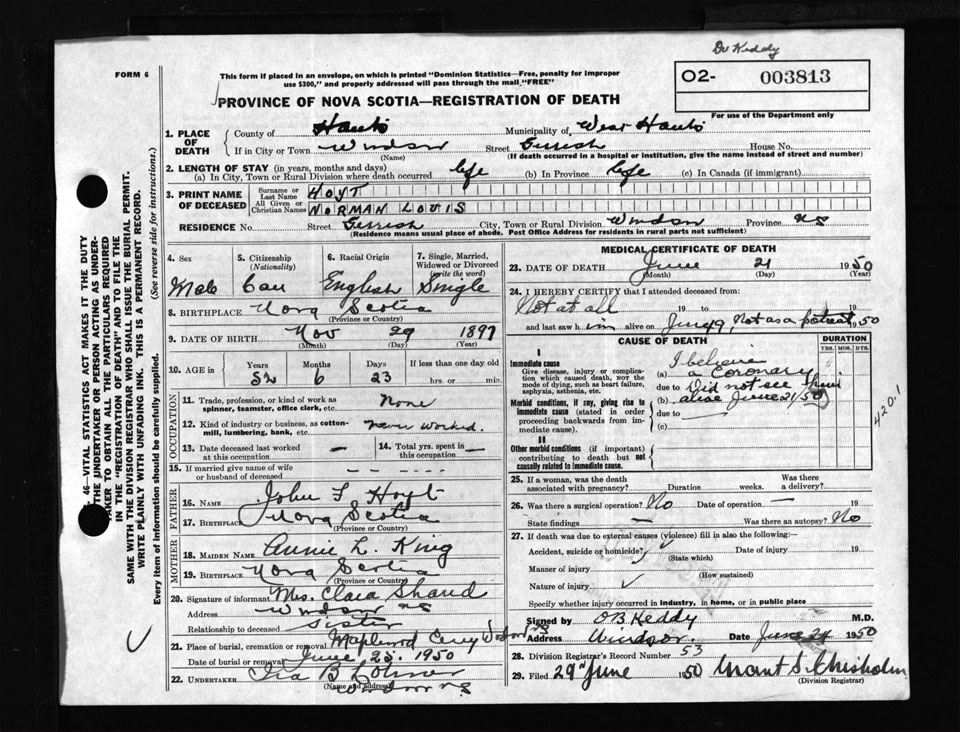 Dr Keddy
FORM 6
This form if placed in an envelope, on which is printed "Dominion Statistics—Free, penalty for improper
use $300," and properly addressed will pass through the mail "FREE"
O2- 003813
For use of the Department only
PROVINCE OF NOVA SCOTIA—REGISTRATION OF DEATH
1. PLACE OF DEATH { County of Hants Municipality of West Hants
If in City or Town Windsor Street Gerrish House No.
(Name) (If death occurred in a hospital or institution, give the name instead of street and number)
2. LENGTH OF STAY (in years, months and days)
(a) In City, Town or Rural Division where death occurred life (b) In Province life (c) In Canada (if immigrant)
3. PRINT NAME OF DECEASED { Surname or Last Name HOYT
All Given or Christian Names NORMAN LOUIS
RESIDENCE No. Street Gerrish City, Town or Rural Division Windsor Province NS
(Residence means usual place of abode. Post Office Address for residents in rural parts not sufficient)
46—VITAL STATISTICS ACT MAKES IT THE DUTY
THE UNDERTAKER OR PERSON ACTING AS UNDER-
TAKER TO OBTAIN ALL THE PARTICULARS REQUIRED
IN THE "REGISTRATION OF DEATH" AND TO FILE THE
SAME WITH THE DIVISION REGISTRAR WHO SHALL ISSUE THE BURIAL PERMIT.
WRITE PLAINLY WITH UNFADING INK. THIS IS A PERMANENT RECORD.
Every item of Information should be carefully supplied. (See reverse side for instructions.)
4. Sex 5. Citizenship (Nationality) 6. Racial Origin 7. Single, Married, Widowed or Divorced (write the word)
Male Can English Single
8. BIRTHPLACE Nova Scotia
(Province or Country)
9. DATE OF BIRTH Nov 29 1897
(Month) (Day) (Year)
10. AGE in { Years Months Days If less than one day old
52 6 23 hrs. or min.
OCCUPATION
11. Trade, profession, or kind of work as
spinner, teamster, office clerk, etc. None
12. Kind of industry or business, as cotton-
mill, lumbering, bank, etc. never worked.
13. Date deceased last worked
at this occupation —
14. Total yrs. spent in
this occupation —
15. If married give name of wife
or husband of deceased — — — — —
FATHER
16. NAME John F Hoyt
17. BIRTHPLACE Nova Scotia
(Province or Country)
MOTHER
18. MAIDEN NAME Annie L. King
19. BIRTHPLACE Nova Scotia
(Province or Country)
20. Signature of informant Mrs. Clara Shand
Address Windsor NS
Relationship to deceased sister
21. Place of burial, cremation or removal Maplewood Cemy Windsor NS
Date of burial or removal June 23. 1950
22. UNDERTAKER Ira B
(Name and Address) Windsor NS
MEDICAL CERTIFICATE OF DEATH
23. DATE OF DEATH June 21 1950
(Month) (Day) (Year)
24. I HEREBY CERTIFY that I attended deceased from:
Not at all 19 to 19
and last saw him alive on June 19, Not as a patient 1950
CAUSE OF DEATH DURATION
YRS. MOS. DYS.
I
Immediate cause
Give disease, injury or complica-
tion which caused death, nor the
mode of dying, such as heart failure,
asphyxia, asthenia, etc.
I believe
(a) a Coronary
due to Did not see him
(b) alive June 21/50
due to —
(c)
420.1
Morbid conditions, if any, giving rise to
immediate cause (stated in order
proceeding backwards from im-
mediate cause).
II
Other morbid conditions (if important)
contributing to death but not
causally related to immediate cause.
25. If a woman, was the death
associated with pregnancy? Duration weeks. Was there
a delivery?
26. Was there a surgical operation? No Date of operation — 19
State findings — Was there an autopsy? No
27. If death was due to external causes (violence) fill in also the following:—
Accident, suicide or homicide? Date of injury 19
(State which)
Manner of injury
(How sustained)
Nature of injury
Specify whether injury occurred in industry, in home, or in public place
Signed by O B. Keddy M.D.
Address Windsor. Date June 24 1950
28. Division Registrar's Record Number 53
29. Filed 29th June 1950 Grant S. Chisholm
(Division Registrar)